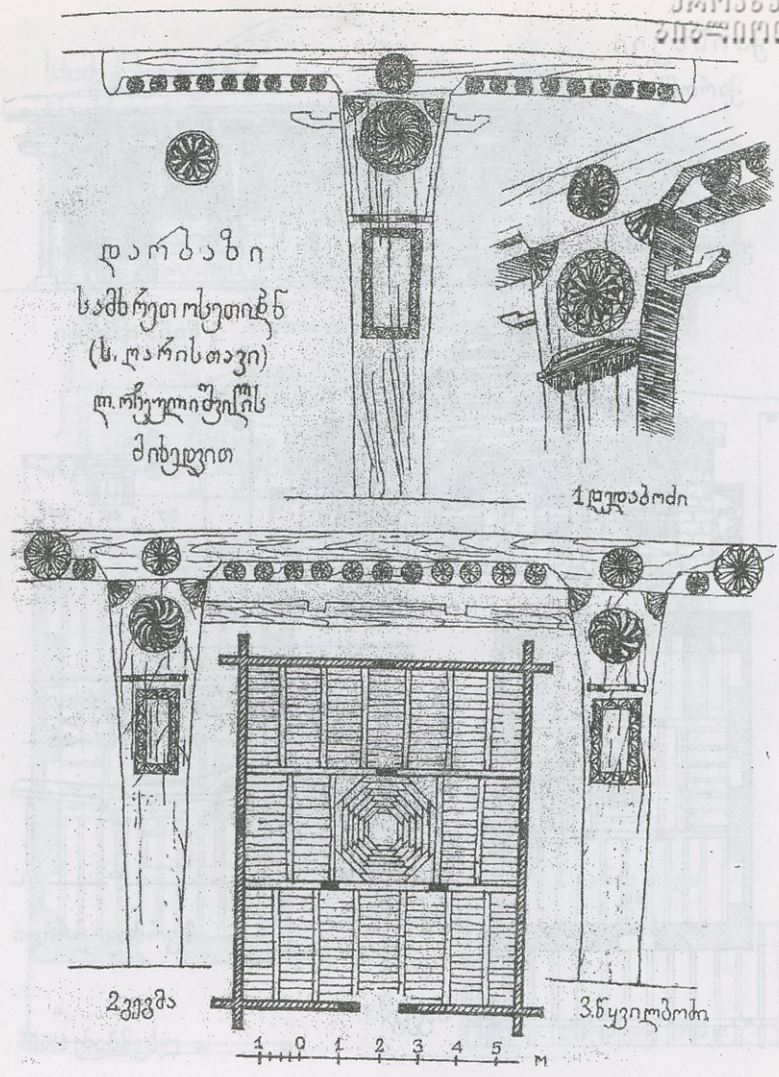 დარბაზი
სამხრეთ ოსეთიდან
(ს. ღარისთავი)
ლ. რჩეულიშვილის
მიხედვით
1 დედაბოძი
2. გეგმა
3. წყვილბოძი
1 0 1 2 3 4 5 м